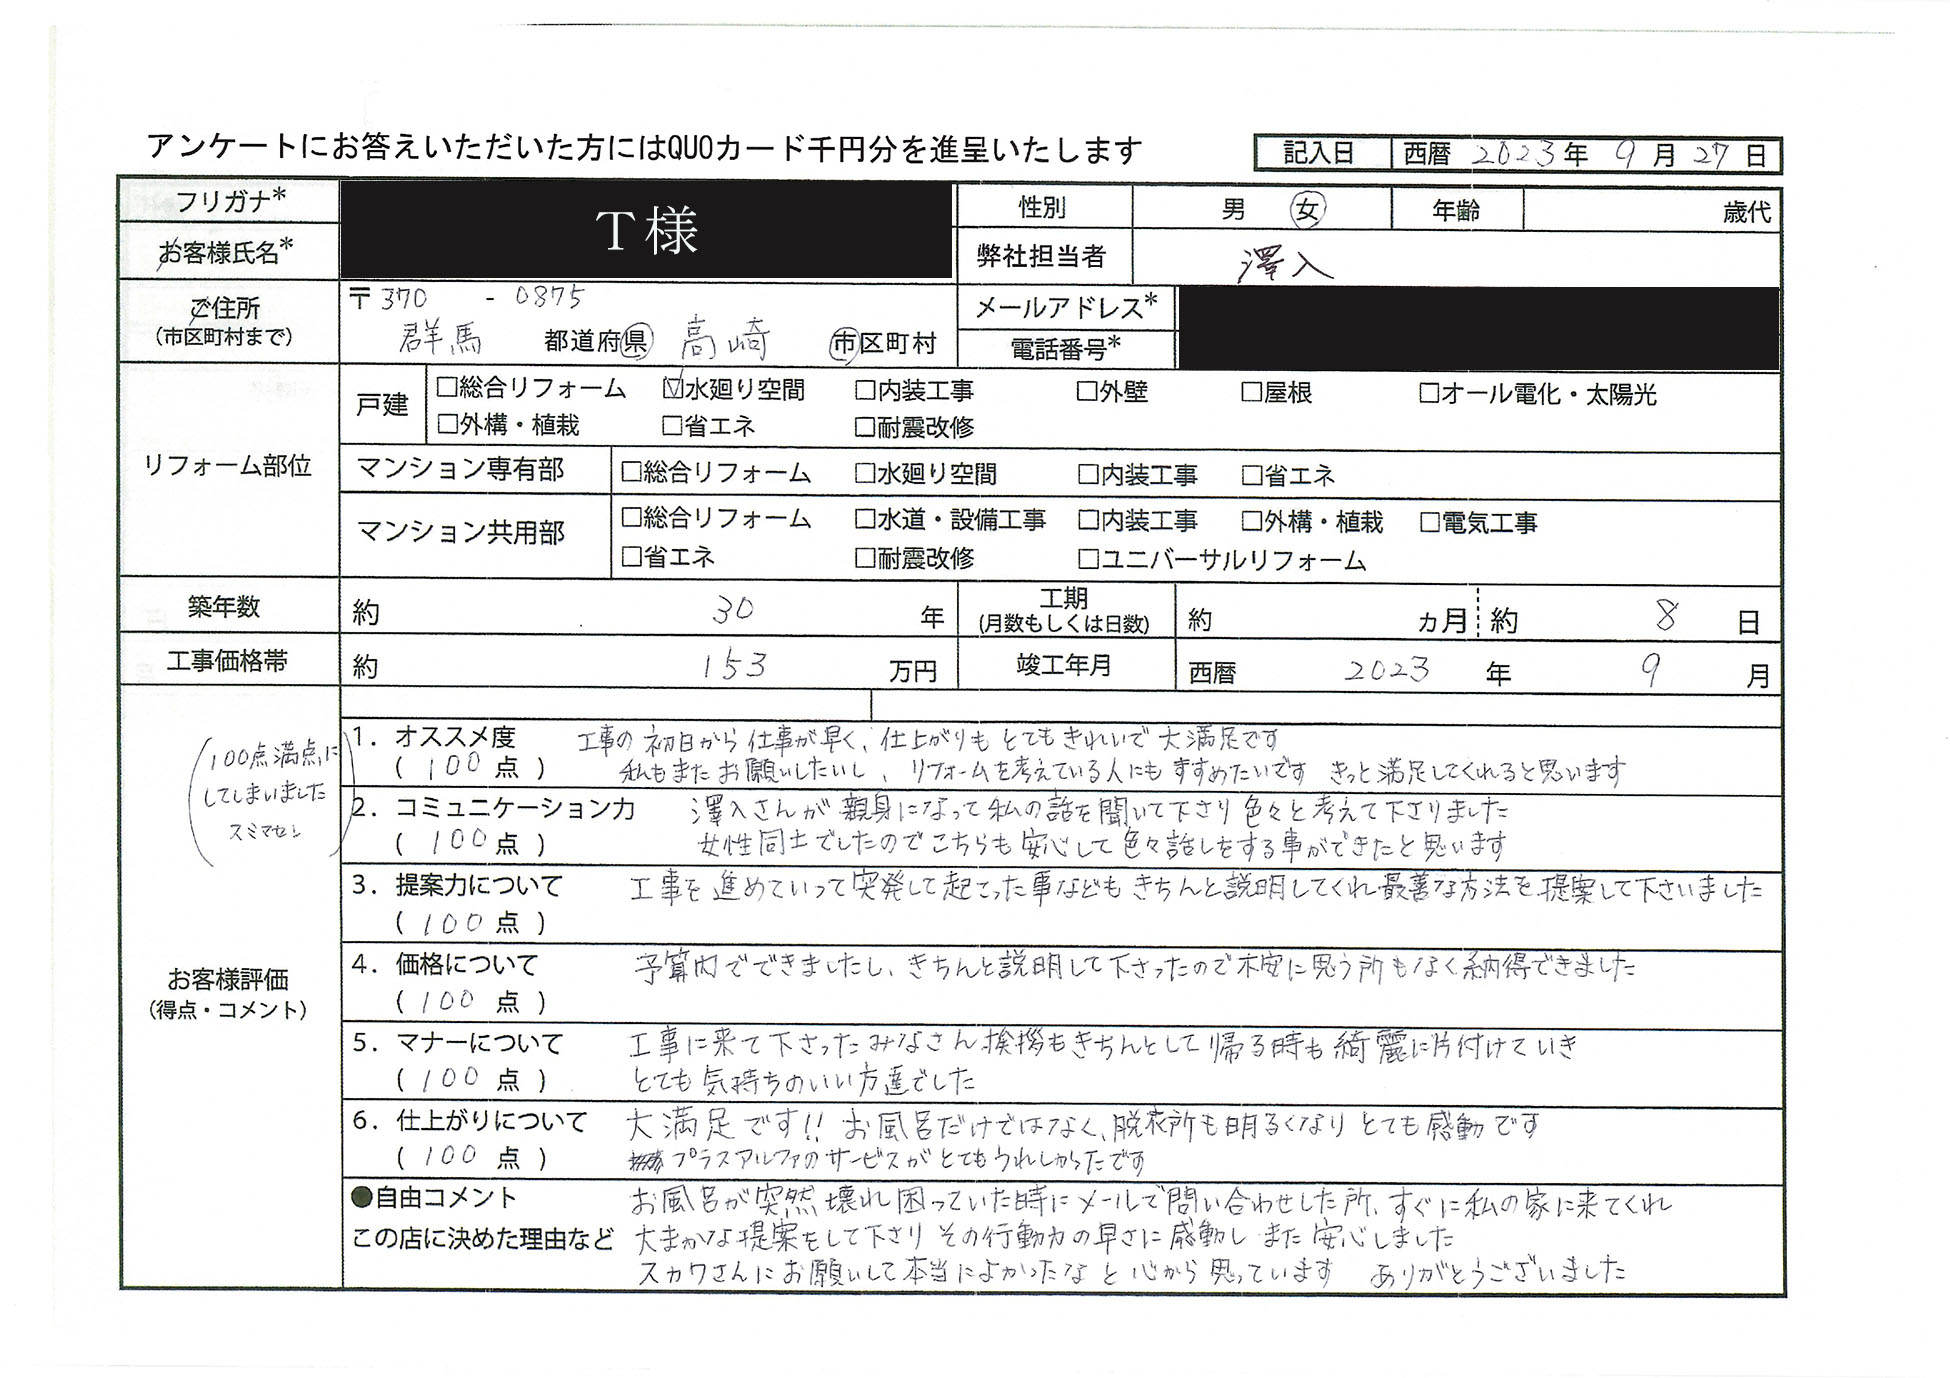 アンケートにお答えいただいた方にはQUOカード千円分を進呈いたします
記入日 西暦 2023年 9月 27日
フリガナ* T様 性別 男 女 年齢 歳代
お客様氏名* 弊社担当者 澤入
ご住所 (市区町村まで) 〒370 - 0875 メールアドレス*
群馬 都道府県 高崎 市区町村 電話番号*
リフォーム部位
戸建 □総合リフォーム ☑水廻り空間 □内装工事 □外壁 □屋根 □オール電化・太陽光
□外構・植栽 □省エネ □耐震改修
マンション専有部 □総合リフォーム □水廻り空間 □内装工事 □省エネ
マンション共用部 □総合リフォーム □水道・設備工事 □内装工事 □外構・植栽 □電気工事
□省エネ □耐震改修 □ユニバーサルリフォーム
築年数 約 30 年 工期 (月数もしくは日数) 約 カ月 約 8 日
工事価格帯 約 153 万円 竣工年月 西暦 2023 年 9 月
お客様評価
(得点・コメント)
(100点満点に
してしまいました
スミマセン)
1. オススメ度 工事の初日から仕事が早く、仕上がりもとてもきれいで大満足です
( 100 点 ) 私もまたお願いしたいし、リフォームを考えている人にもすすめたいです きっと満足してくれると思います
2. コミュニケーション力 澤入さんが親身になって私の話を聞いて下さり色々と考えて下さりました
( 100 点 ) 女性同士でしたのでこちらも安心して色々話しをする事ができたと思います
3. 提案力について 工事を進めていって突発して起こった事などもきちんと説明してくれ最善な方法を提案して下さいました
( 100 点 )
4. 価格について 予算内でできましたし、きちんと説明して下さったので不安に思う所もなく納得できました
( 100 点 )
5. マナーについて 工事に来て下さったみなさん挨拶もきちんとして帰る時も綺麗に片付けていき
( 100 点 ) とても気持ちのいい方達でした
6. 仕上がりについて 大満足です!! お風呂だけではなく、脱衣所も明るくなりとても感動です
( 100 点 ) プラスアルファのサービスがとてもうれしかったです
●自由コメント お風呂が突然壊れ困っていた時にメールで問い合わせした所、すぐに私の家に来てくれ
この店に決めた理由など 大まかな提案をして下さりその行動力の早さに感動しまた安心しました
スカワさんにお願いして本当によかったなと心から思っています ありがとうございました